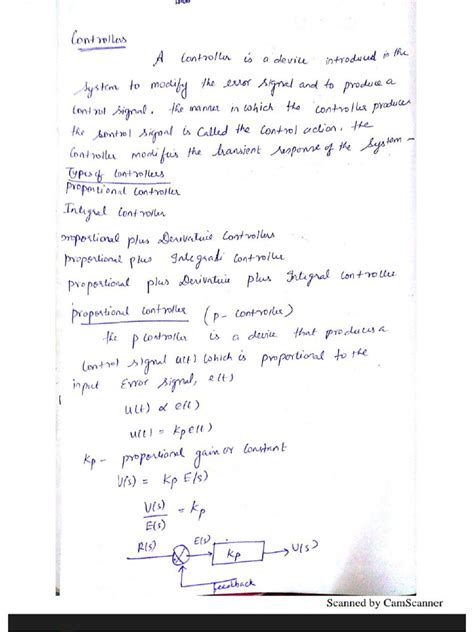 Controllers
A Controller is a device introduced in the
system to modify the error signal and to produce a
control signal. the manner in which the controller produces
the control signal is called the control action. the
Controller modifies the transient response of the system -
Types of controllers
proportional controller
Integral controller
proportional plus Derivative controllers
proportional plus Integral controller
proportional plus Derivative plus Integral controller
proportional controller (p - controller)
the p controller is a device that produces a
control signal u(t) which is proportional to the
input Error signal, e(t)
u(t) ∝ e(t)
u(t) = Kp e(t)
Kp - proportional gain or constant
U(s) = Kp E(s)
U(s)/E(s) = Kp
R(s) E(s) Kp U(s)
feedback
Scanned by CamScanner